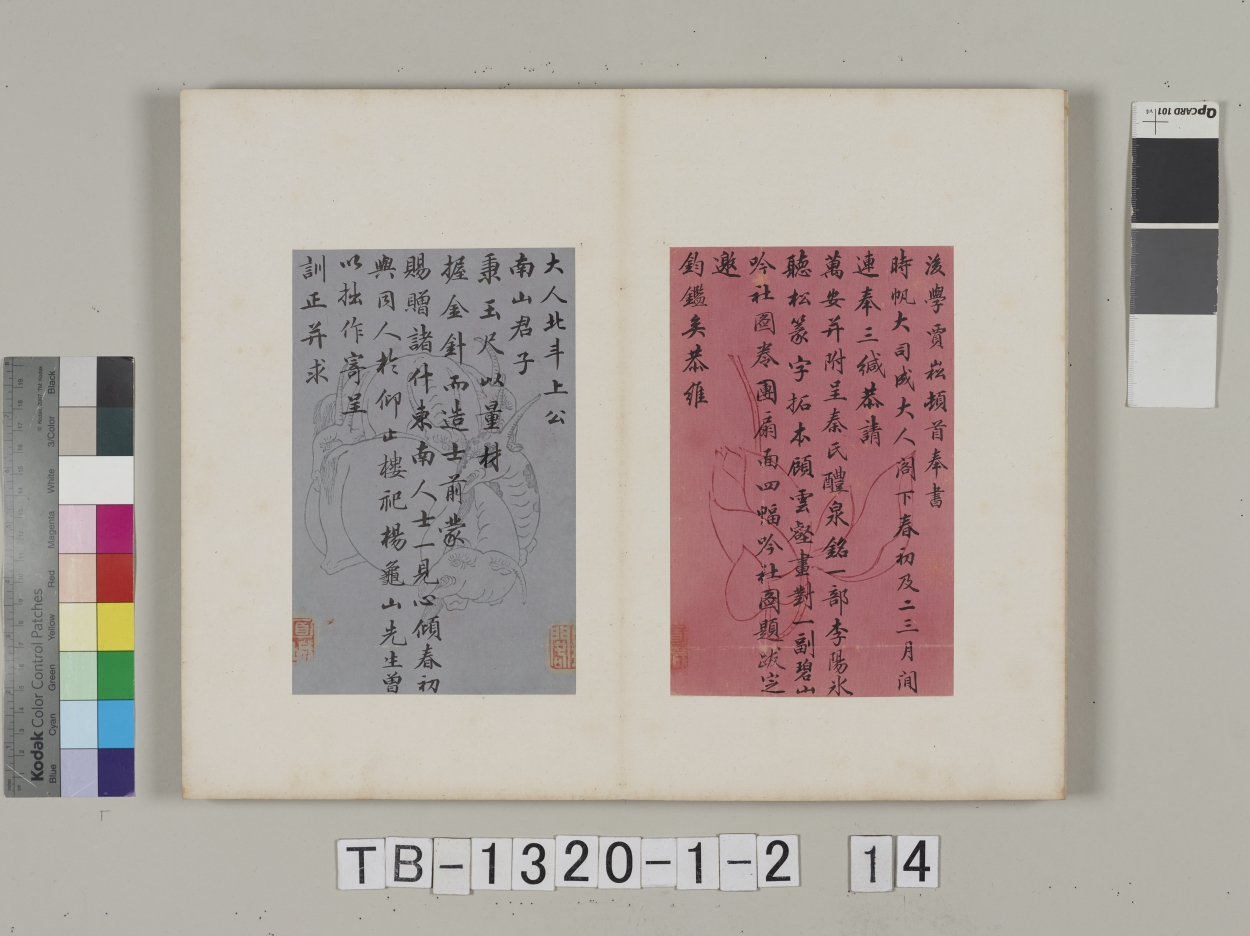 後學賈崧頓首奉書
時帆大司成大人閣下春初及二三月間
連奉三緘恭請
萬安并附呈秦氏醴泉銘一部李陽冰
聽松篆字拓本顧雲壑畫對一副碧山
吟社圖卷團扇面四幅吟社圖題跋定
邀
鈞鑑矣恭維
大人北斗上公
南山君子
秉玉尺以量材
握金針而造士前蒙
賜贈諸什東南人士一見心傾春初
與同人於仰止樓祀楊龜山先生曾
以拙作寄呈
訓正并求
QPCARD 101 v4
Kodak Color Control Patches
Blue Cyan Green Yellow Red Magenta White 3/Color Black
TB-1320-1-2 14